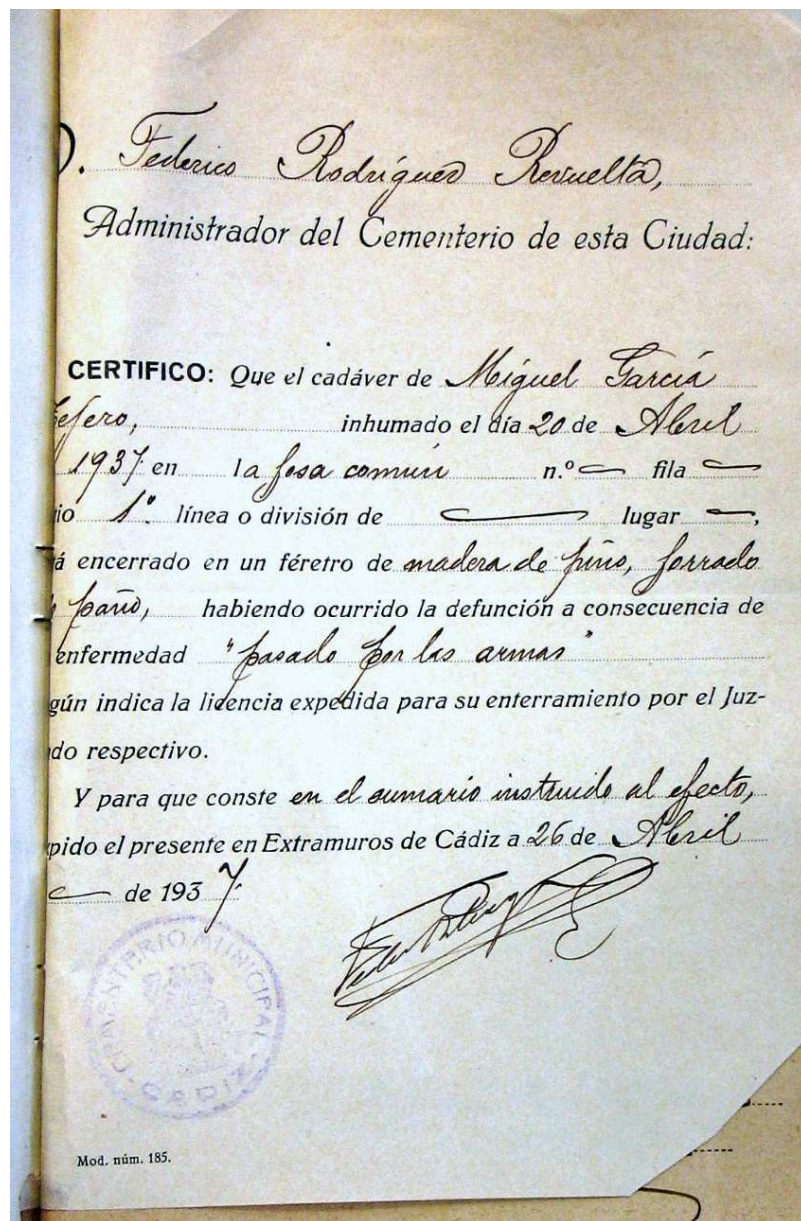 D. Federico Rodríguez Revuelta,
Administrador del Cementerio de esta Ciudad:
CERTIFICO: Que el cadáver de Miguel García
inhumado el día 20 de Abril
1937 en la fosa común n.º fila
io 1º. línea o división de lugar ,
á encerrado en un féretro de madera de pino, forrado
paño, habiendo ocurrido la defunción a consecuencia de
enfermedad "pasado por las armas"
gún indica la licencia expedida para su enterramiento por el Juz-
do respectivo.
Y para que conste en el sumario instruido al efecto,
pido el presente en Extramuros de Cádiz a 26 de Abril
de 1937.
CEMENTERIO MUNICIPAL
CADIZ
Mod. núm. 185.